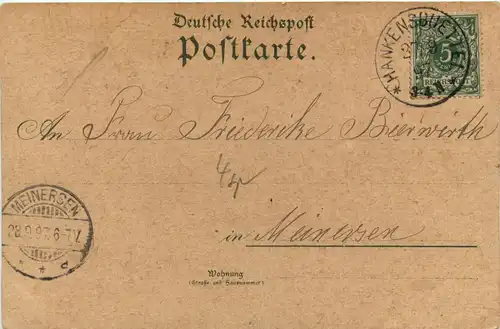 Deutsche Reichspost
Postkarte.
* HANKENSBUETTEL
5
An Frau Friederike Bierwirth
MEINERSEN
in Meinersen
Wohnung
(Straße und Hausnummer)